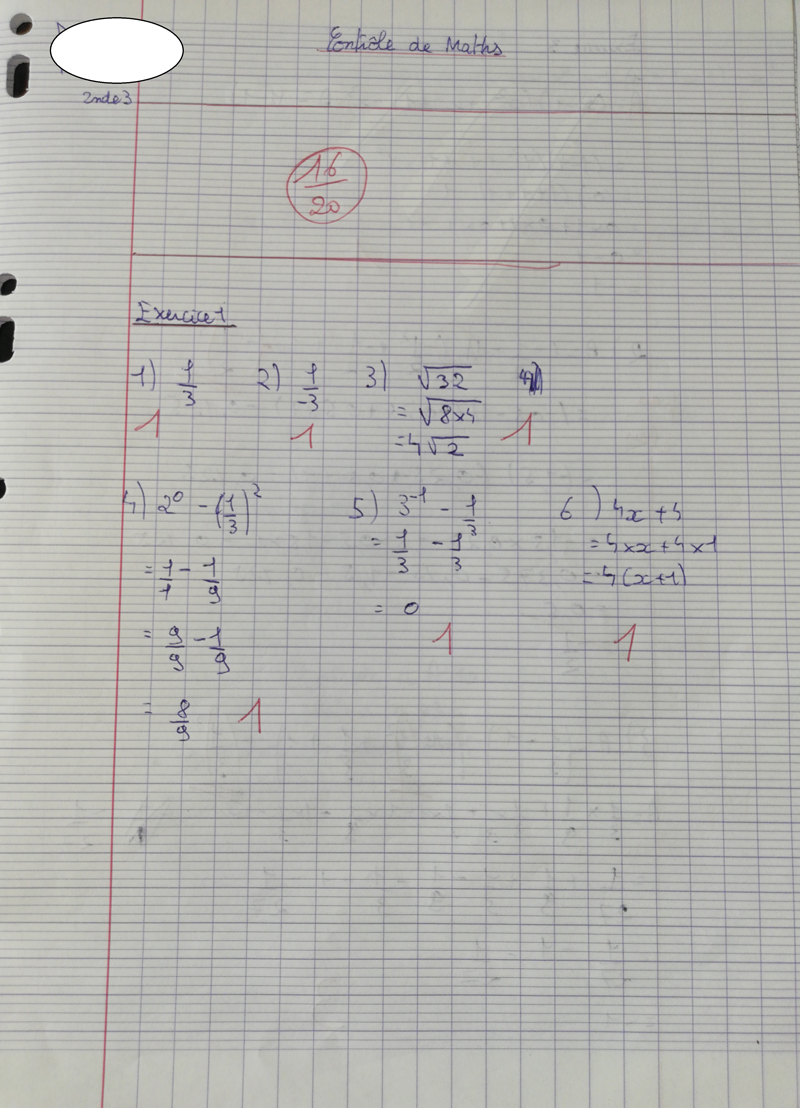 Contrôle de Maths
2nde3
16/20
Exercice 1
1) 1/3 2) 1/-3 3) √32
= √8×4
= 4√2
1 1 1
4) 2⁰ - (1/3)²
= 1/1 - 1/9
= 9/9 - 1/9
= 8/9
1
5) 3⁻¹ - 1/3
= 1/3 - 1/3
= 0
1
6) 4x + 4
= 4×x + 4×1
= 4(x+1)
1